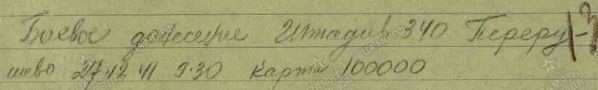 Боевое донесение Штадив 340 Переру-
шево 27.12.41 9.30 Карта 100000